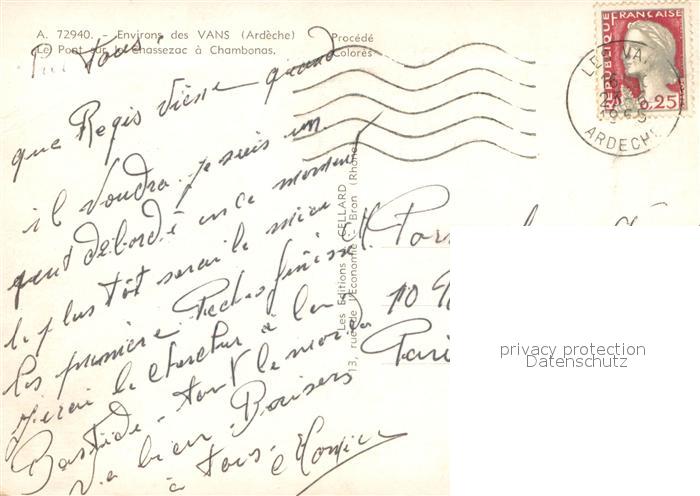 A. 72940. - Environs des VANS (Ardèche)
Le Pont sur le Chassezac à Chambonas.
Procédé
Colorés
RÉPUBLIQUE FRANÇAISE
0.25
LES VANS
1965
ARDECHE
Les Editions CELLARD
13, rue de l'Economie - Bron (Rhône)
vous
que Regis vienne quand
il voudra. je suis un
peut débordé en ce moment
le plus tôt serait le mieux
les première Peches finissent
J'irai le chercher à la
Bastide - tout le monde
va bien. Baisers
à tous.
10
Paris
privacy protection
Datenschutz